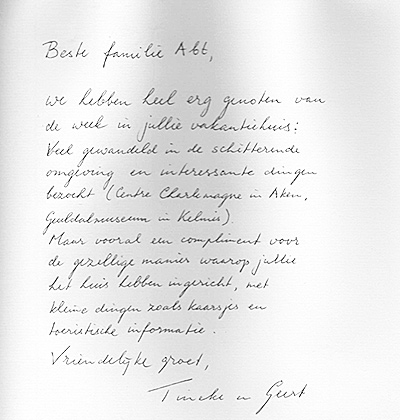 Beste familie Abt,
we hebben heel erg genoten van
de week in jullie vakantiehuis:
Veel gewandeld in de schitterende
omgeving en interessante dingen
bezocht (Centre Charlemagne in Aken,
Geuldalmuseum in Kelmis).
Maar vooral een compliment voor
de gezellige manier waarop jullie
het huis hebben ingericht, met
kleine dingen zoals kaarsjes en
toeristische informatie.
Vriendelijke groet,
Tineke en Geert